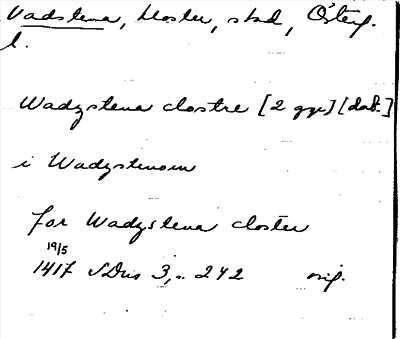 Vadstena, kloster, stad, Österg.
l.
Wadzstena clostre [2 ggr] [dat.]
i Wadzstenom
for Wadzstena closter
19/5
1417 SDns 3, s. 242 orig.